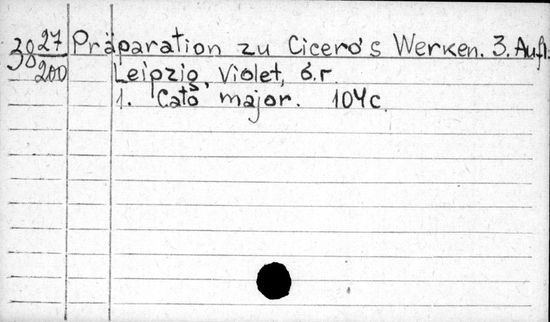 30 27/200 Präparation zu Cicero's Werken. 3. Aufl.
Leipzig, Violet, б.г.
1. Cato major. 104 с.